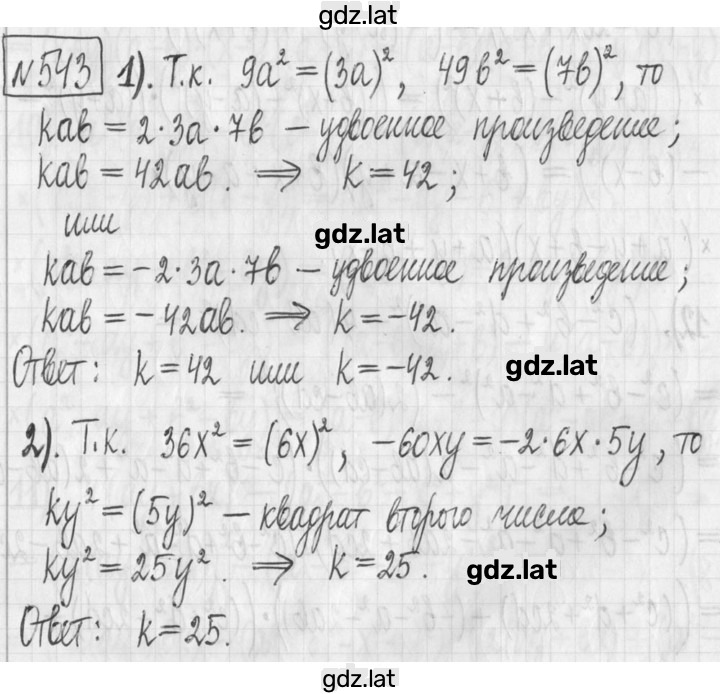 gdz.lat
№543 1). Т.к. 9a² = (3a)², 49b² = (7b)², то
kab = 2·3a·7b – удвоенное произведение;
kab = 42ab. ⟹ k = 42;
или
gdz.lat
kab = –2·3a·7b – удвоенное произведение;
kab = –42ab. ⟹ k = –42.
Ответ: k = 42 или k = –42.
gdz.lat
2). Т.к. 36x² = (6x)², –60xy = –2·6x·5y, то
ky² = (5y)² – квадрат второго числа;
ky² = 25y². ⟹ k = 25.
gdz.lat
Ответ: k = 25.
gdz.lat